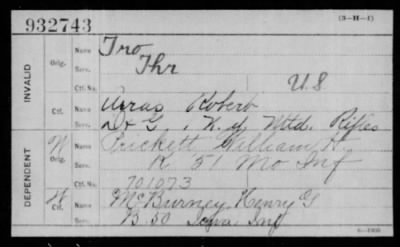 932743
(3-H-1)
INVALID
Orig.
Name
Serv.
Ctf. No.
Thr
U.S
Ctf.
Name
Robert
Serv.
D & G , N. Y Mtd. Rifles
DEPENDENT
W
Orig.
Name
Prickett William H.
Serv.
K 51 Mo Inf
Ctf. No.
701073
W
Ctf.
Name
McBurney Henry G
Serv.
B. 50 Iowa Inf